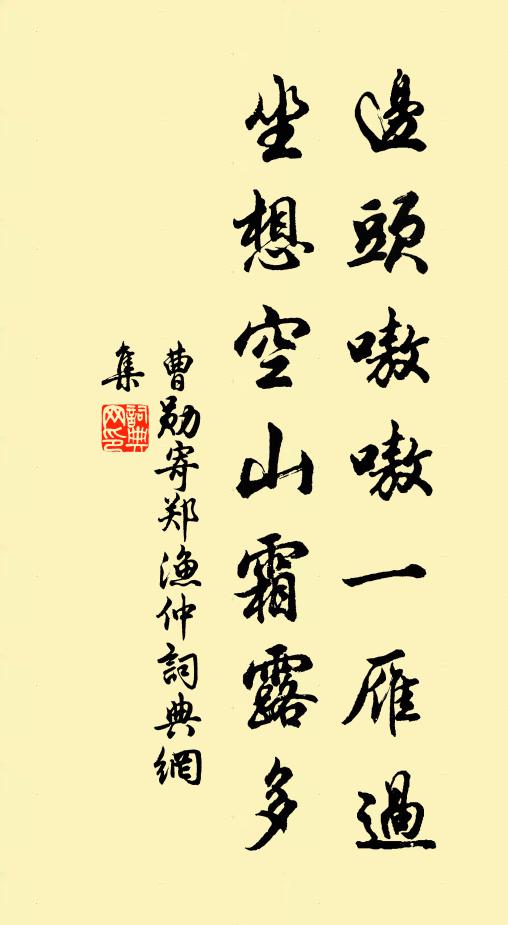 邊頭嗷嗷一雁過
坐想空山霜露多
曹勛寄郑漁仲詞典網
集
詞典網印